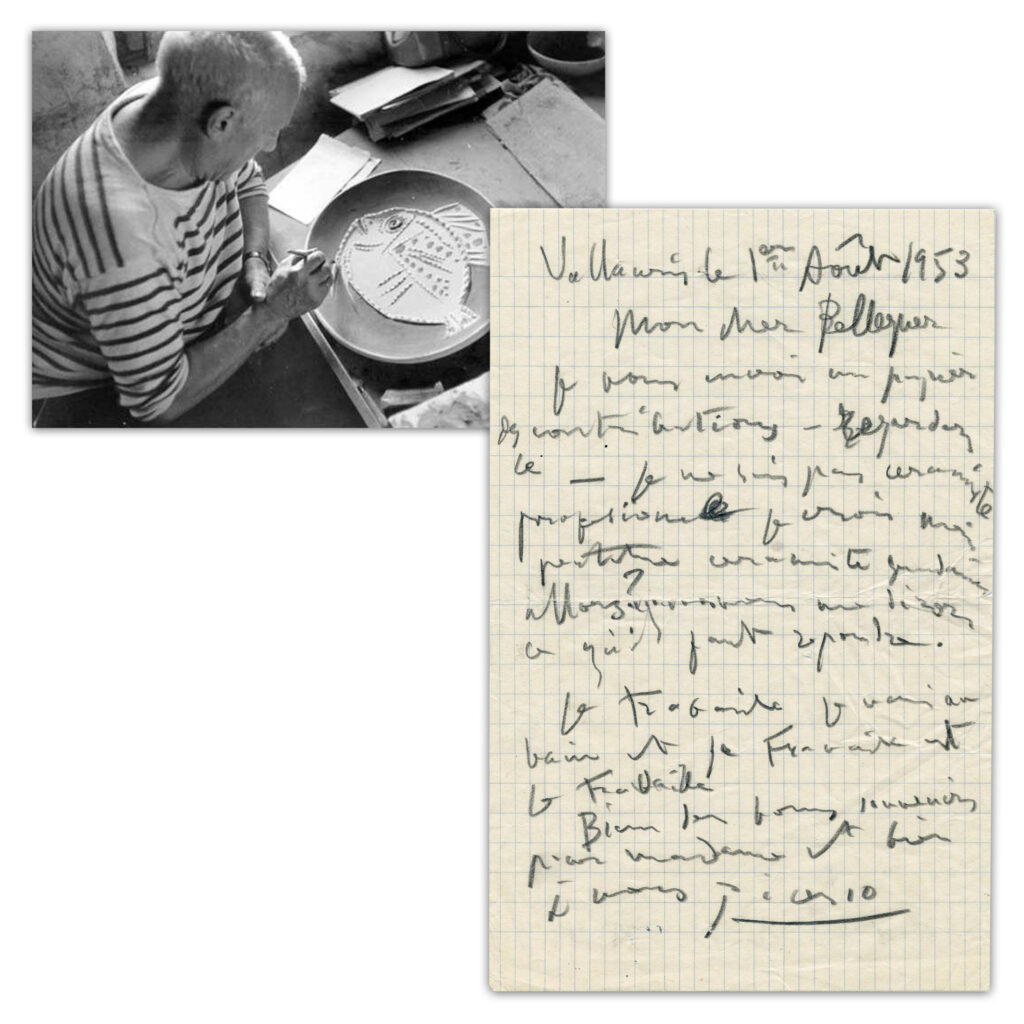 Vallauris le 1er Août 1953
Mon cher Pellequer
Je vous envoi un papier
des contributions – Regardez
le — Je ne suis pas ceramiste
profesionel je crois
ceramite
allors? me direz
ce qu'il faut repondre.
Je travaille je vais au
bain et je travaille et
je travaille
Bien des bons souvenirs
pour madame et bien
à vous Picasso